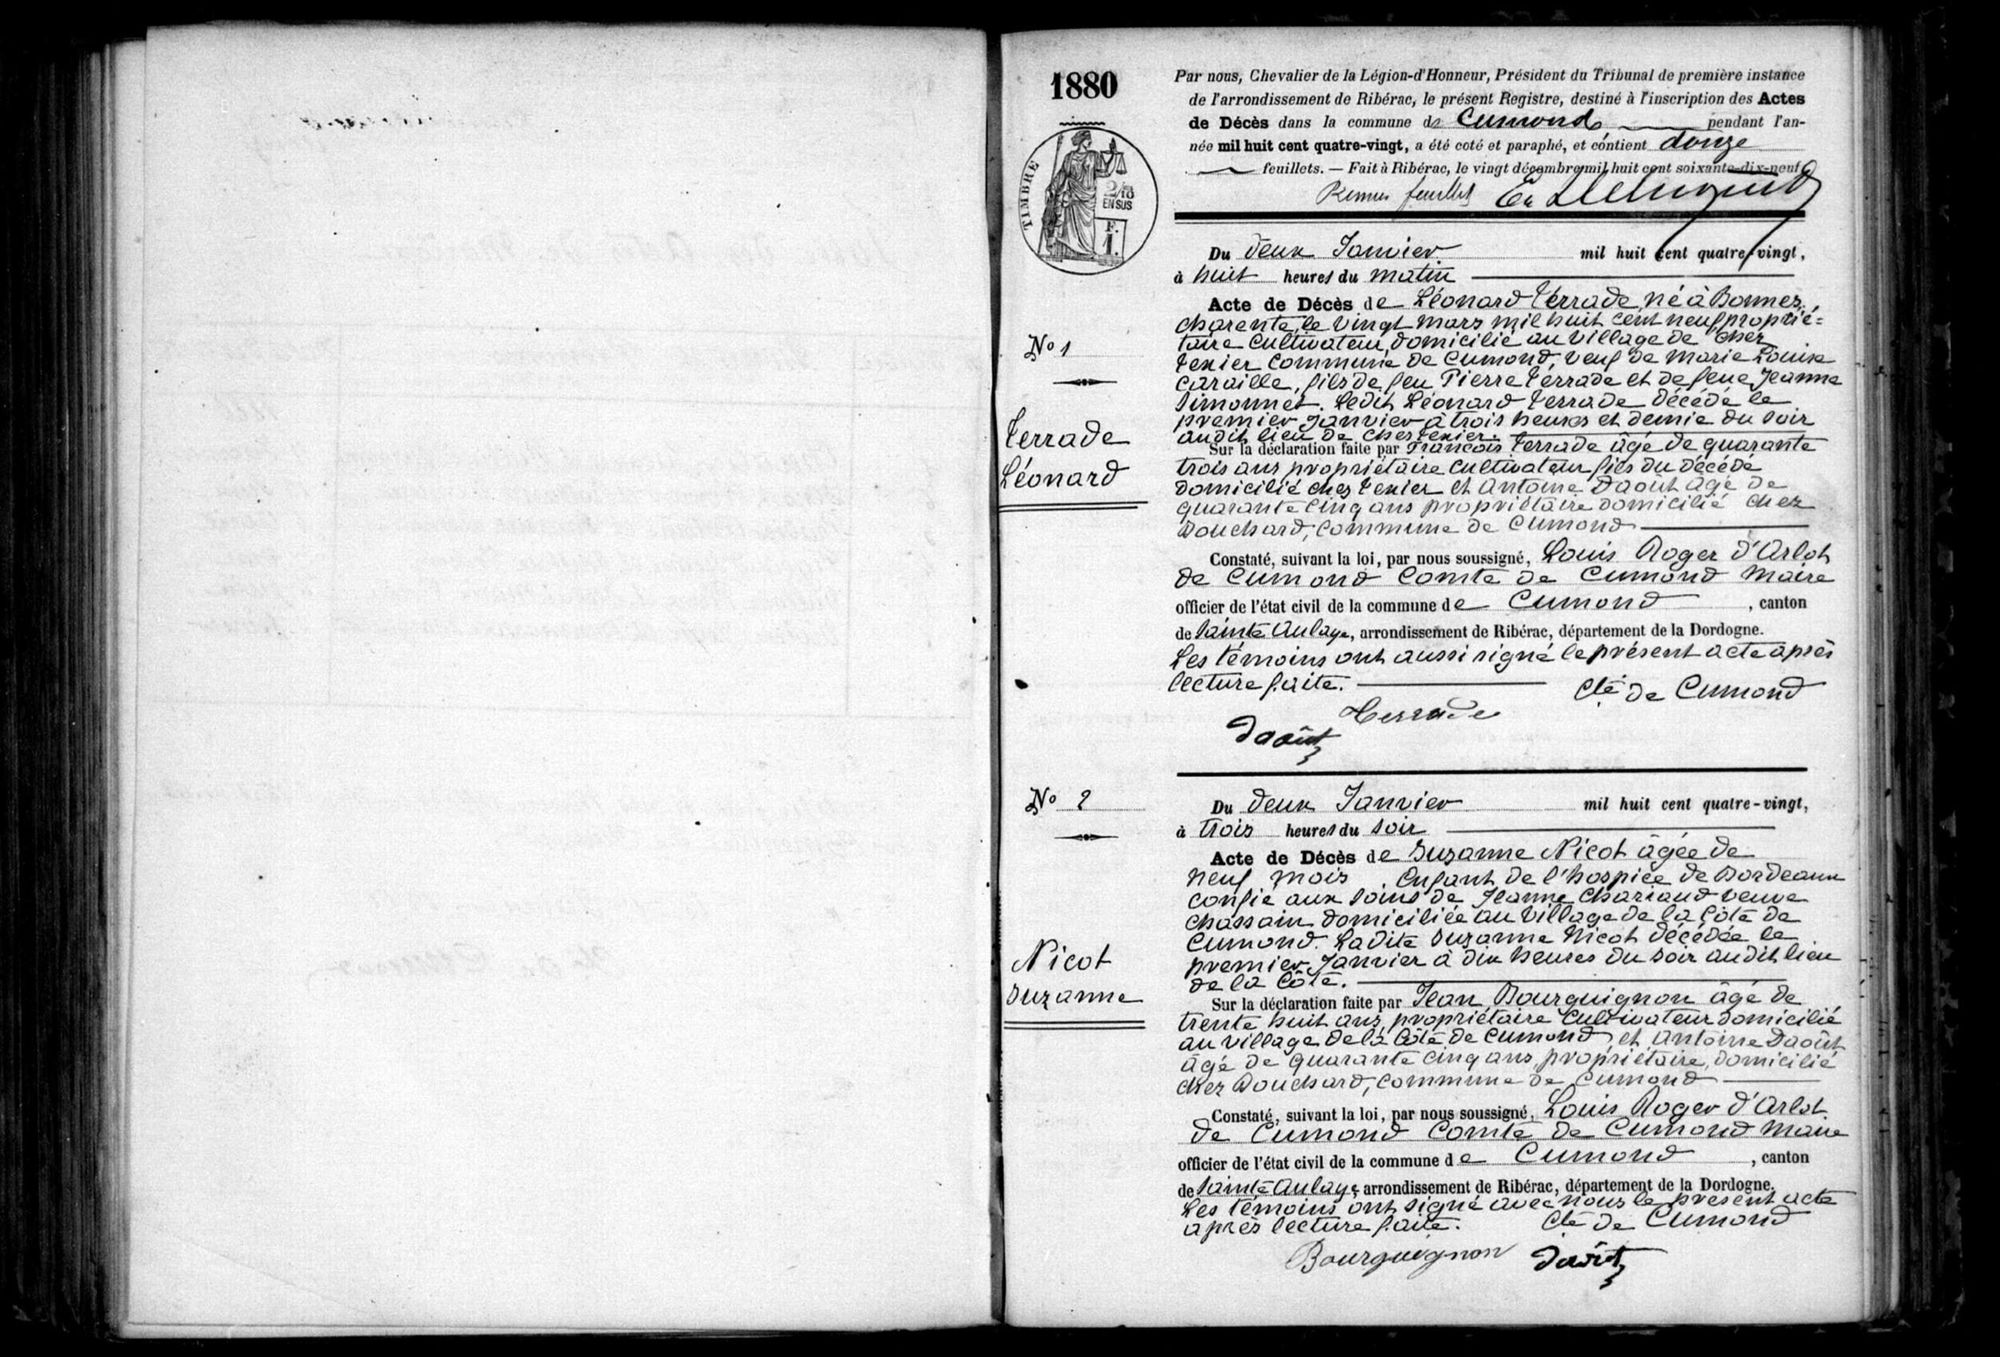 1880
Par nous, Chevalier de la Légion-d'Honneur, Président du Tribunal de première instance
de l'arrondissement de Ribérac, le présent Registre, destiné à l'inscription des Actes
de Décès dans la commune de Cumond pendant l'an-
née mil huit cent quatre-vingt, a été coté et paraphé, et contient douze
feuillets. — Fait à Ribérac, le vingt décembre mil huit cent soixante-dix-neuf
feuillet
TIMBRE
2/10
EN SUS
F.
1.
Du deux Janvier mil huit cent quatre-vingt,
à huit heures du matin
Acte de Décès de Léonard Terrade, né à Bonnes,
charente, le vingt mars mil huit cent neuf proprié=
taire cultivateur, domicilié au village de chez
Texier commune de Cumond, veuf de Marie Louise
Caraille, fils de feu Pierre Terrade et de feue Jeanne
Simonnet. Ledit Léonard Terrade décédé le
premier Janvier à trois heures et demie du soir
audit lieu de chez Texier.
No 1
Terrade
Léonard
Sur la déclaration faite par François Terrade âgé de quarante
trois ans propriétaire cultivateur fils du décédé
domicilié chez Texier et Antoine Daout âgé de
quarante cinq ans propriétaire domicilié chez
Bouchard, commune de Cumond
Constaté, suivant la loi, par nous soussigné, Louis Roger d'Arlot
de Cumond Comte de Cumond Maire
officier de l'état civil de la commune de Cumond, canton
de Sainte Aulaye, arrondissement de Ribérac, département de la Dordogne.
Les témoins ont aussi signé le présent acte après
lecture faite.
Cte de Cumond
Terrade
Daoût
No 2
Du deux Janvier mil huit cent quatre-vingt,
à trois heures du soir
Acte de Décès de Suzanne Nicot âgée de
neuf mois Enfant de l'hospice de Bordeaux
confié aux soins de Jeanne Chariaud veuve
Chassain domiciliée au village de la Côte de
Cumond. Ladite Suzanne Nicot décédée le
premier Janvier à dix heures du soir audit lieu
de la Côte.
Nicot
Suzanne
Sur la déclaration faite par Jean Bourguignon âgé de
trente huit ans, propriétaire cultivateur domicilié
au village de la Côte de Cumond et Antoine Daoût
âgé de quarante cinq ans, propriétaire, domicilié
chez Bouchard, commune de Cumond
Constaté, suivant la loi, par nous soussigné, Louis Roger d'Arlot
de Cumond Comte de Cumond Maire
officier de l'état civil de la commune de Cumond, canton
de Sainte Aulaye, arrondissement de Ribérac, département de la Dordogne.
Les témoins ont signé avec nous le présent acte
après lecture faite. Cte de Cumond
Bourguignon Daoût